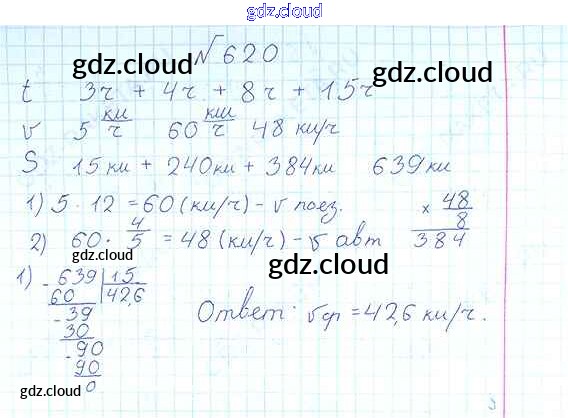 gdz.cloud
№620
gdz.cloud gdz.cloud
t 3ч + 4ч + 8ч + 15ч
v 5 км/ч 60 км/ч 48 км/ч
S 15км + 240км + 384км 639км
1) 5 · 12 = 60 (км/ч) - v поез.
2) 60 · 4/5 = 48 (км/ч) - v авт
× 48
8
384
gdz.cloud gdz.cloud
1) - 639 | 15
60 42,6
- 39
30
- 90
90
0
Ответ: vср = 42,6 км/ч.
gdz.cloud gdz.cloud